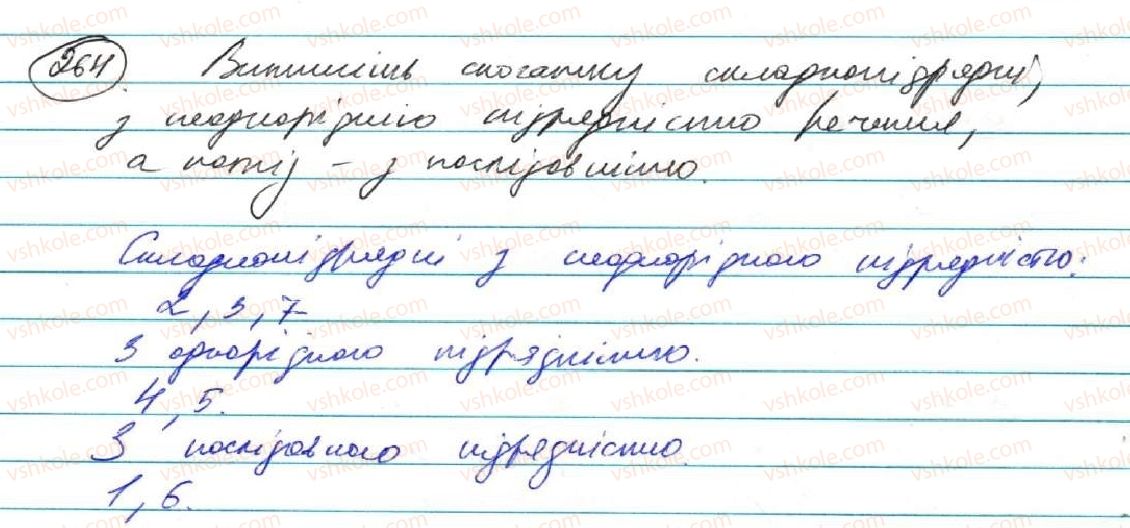 264. Випишіть спочатку складнопідрядні,
з неоднорідною підрядністю речення,
а потім – з послідовністю.
Складнопідрядні з неоднорідною підрядністю:
2, 3, 7
З однорідною підрядністю.
4, 5.
З послідовною підрядністю.
1, 6.